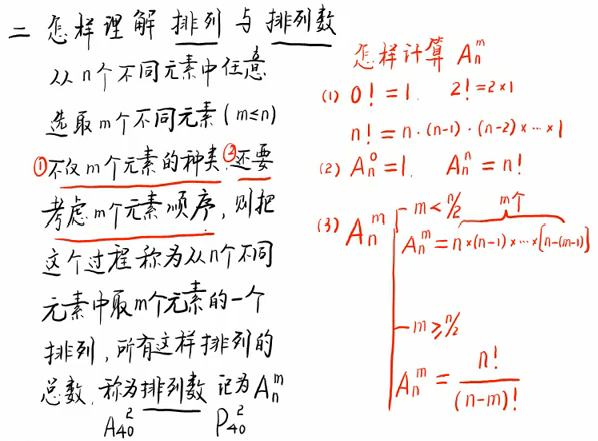 二 怎样理解 排列 与 排列数
从n个不同元素中任意
选取m个不同元素(m≤n)
①不仅m个元素的种类,②还要
考虑m个元素顺序,则把
这个过程称为从n个不同
元素中取m个元素的一个
排列,所有这样排列的
总数,称为排列数 记为Aₙᵐ
A₄₀² P₄₀²
怎样计算 Aₙᵐ
(1) 0! = 1. 2! = 2×1
n! = n·(n-1)·(n-2)×…×1
(2) Aₙ⁰ = 1. Aₙⁿ = n!
(3) Aₙᵐ
m < n/2 m个
Aₙᵐ = n×(n-1)×…×[n-(m-1)]
m ≥ n/2
Aₙᵐ = n!/(n-m)!